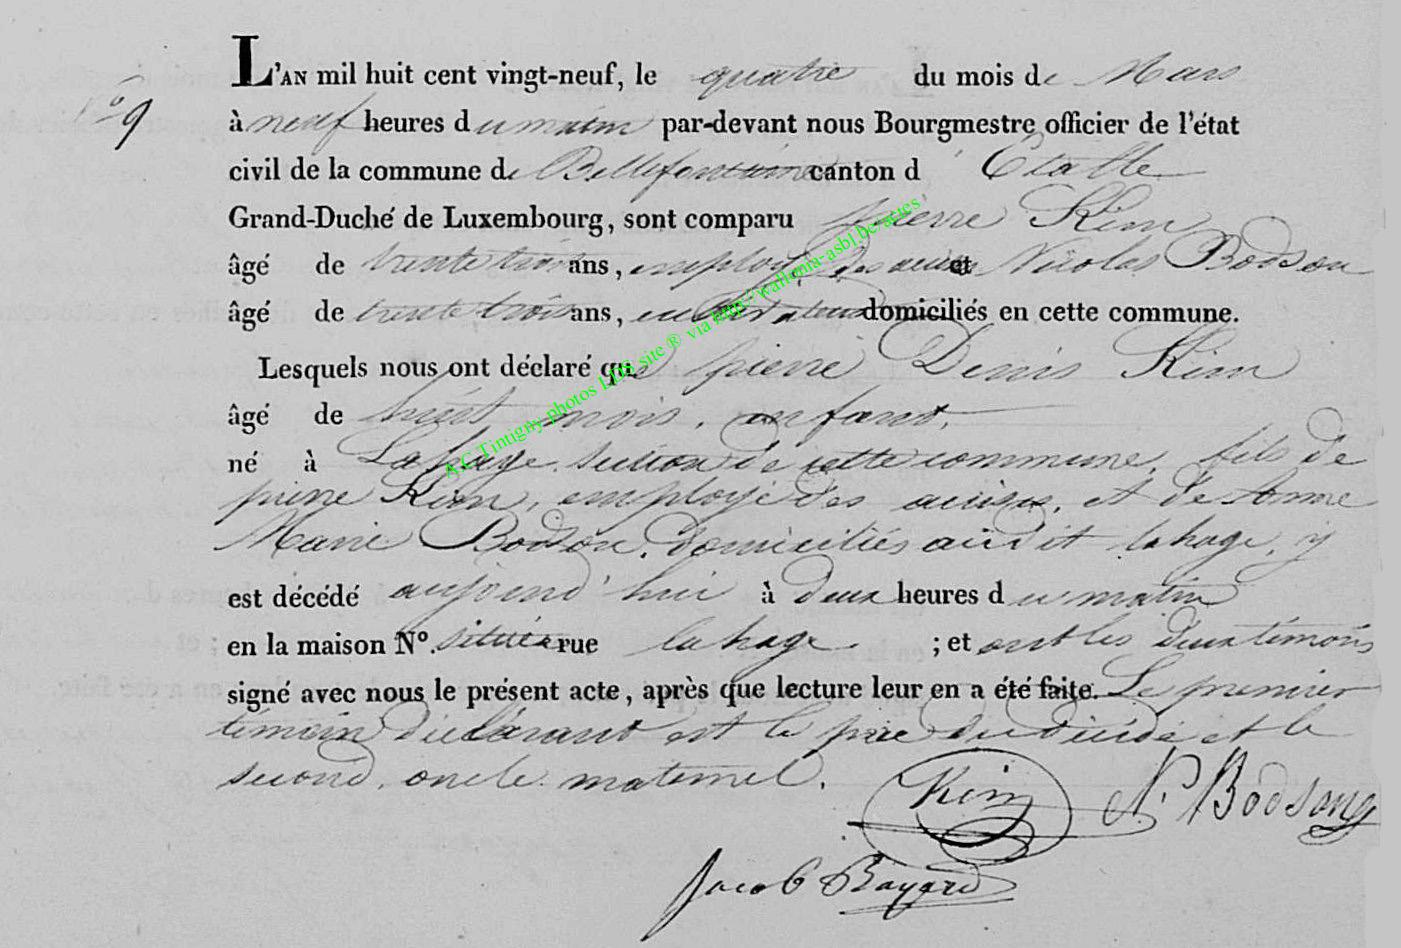 L'AN mil huit cent vingt-neuf, le quatre du mois de Mars
No 9
à neuf heures du matin par-devant nous Bourgmestre officier de l'état
civil de la commune de Bellefontaine canton d'Etalle
Grand-Duché de Luxembourg, sont comparu pierre Kim
âgé de trente trois ans, employé des accises et Nicolas Bodson
âgé de trente trois ans, cultivateur domiciliés en cette commune.
Lesquels nous ont déclaré que pierre Denis Kim
âgé de huit mois, enfant,
né à Lahage section de cette commune, fils de
pierre Kim, employé des accises, et de
Marie Bodson, domiciliés audit lahage, y
est décédé aujourd'hui à deux heures du matin
en la maison No. située rue lahage ; et ont les deux témoins
signé avec nous le présent acte, après que lecture leur en a été faite. Le premier
témoin déclarant est le père du décédé et le
second oncle maternel.
Kim N. Bodson
Jacob Bayard
A.C Tintigny photos LDS site ® via http://wallonia-asbl.be/actes